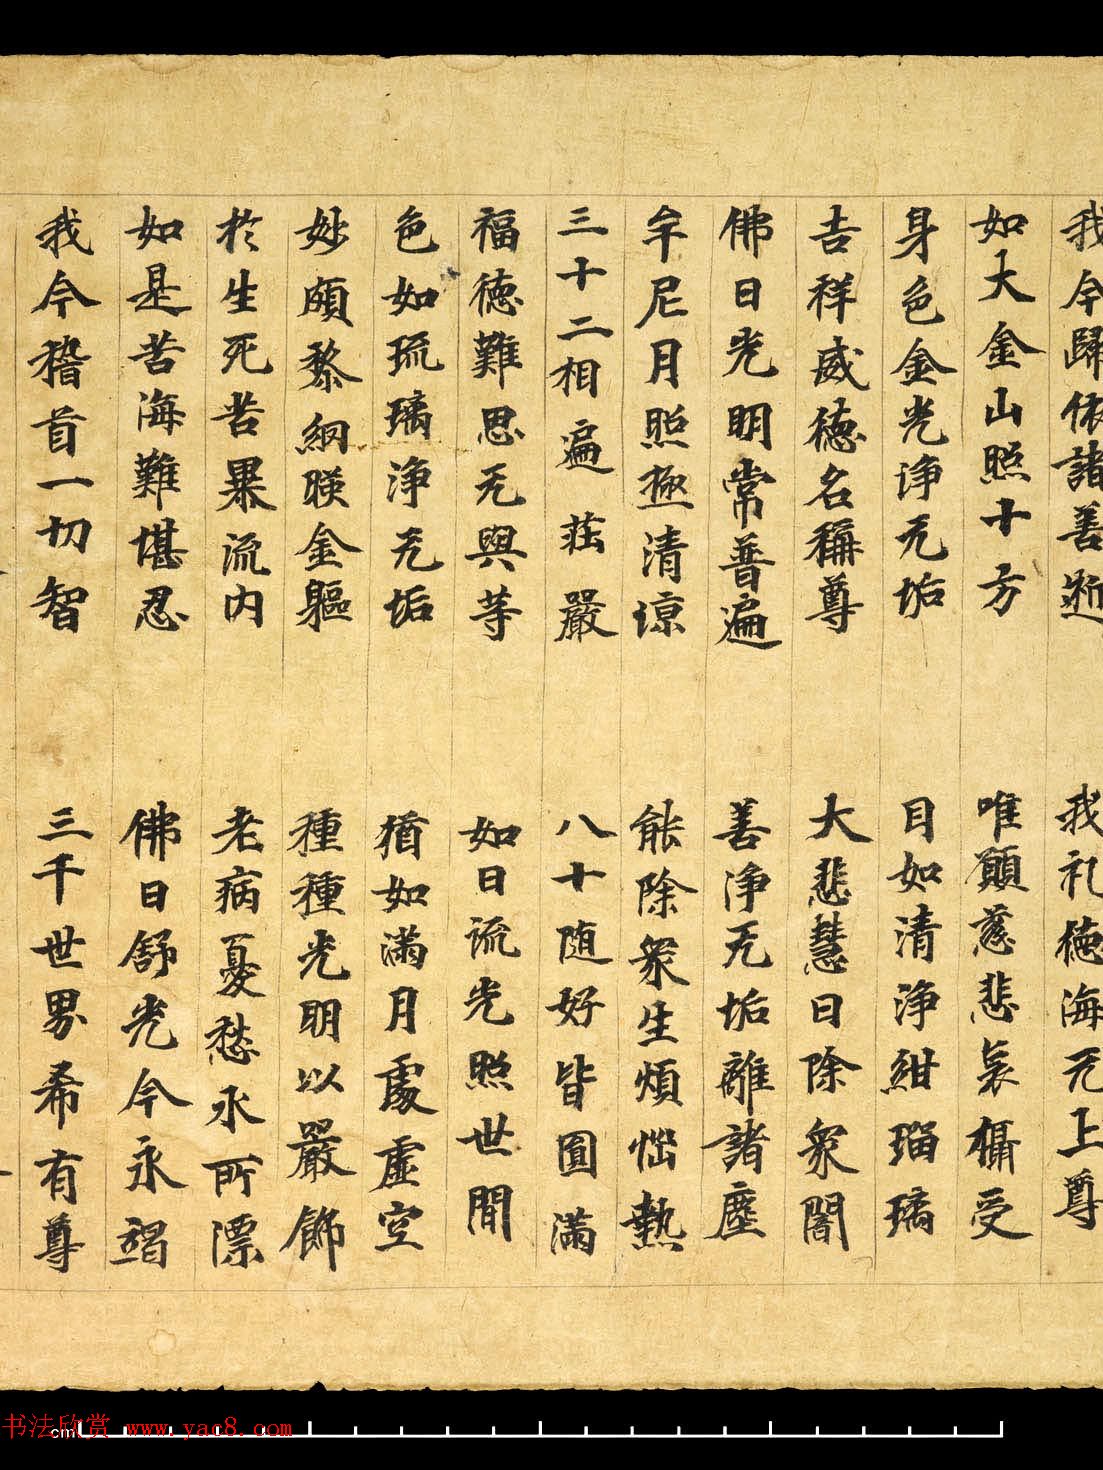 我今歸依諸善逝 我礼德海无上尊
如大金山照十方 唯願慈悲哀攝受
身色金光淨无垢 目如清淨紺瑠璃
吉祥威德名稱尊 大悲慧日除衆闇
佛日光明常普遍 善淨无垢離諸塵
牟尼月照極清涼 能除衆生煩惱熱
三十二相遍莊嚴 八十随好皆圓滿
福德難思无與等 如日流光照世間
色如琉璃淨无垢 猶如滿月處虛空
妙頗黎網暎金軀 種種光明以嚴飾
於生死苦暴流内 老病憂愁水所漂
如是苦海難堪忍 佛日舒光令永竭
我今稽首一切智 三千世界希有尊
cm
书法欣赏 www.yac8.com